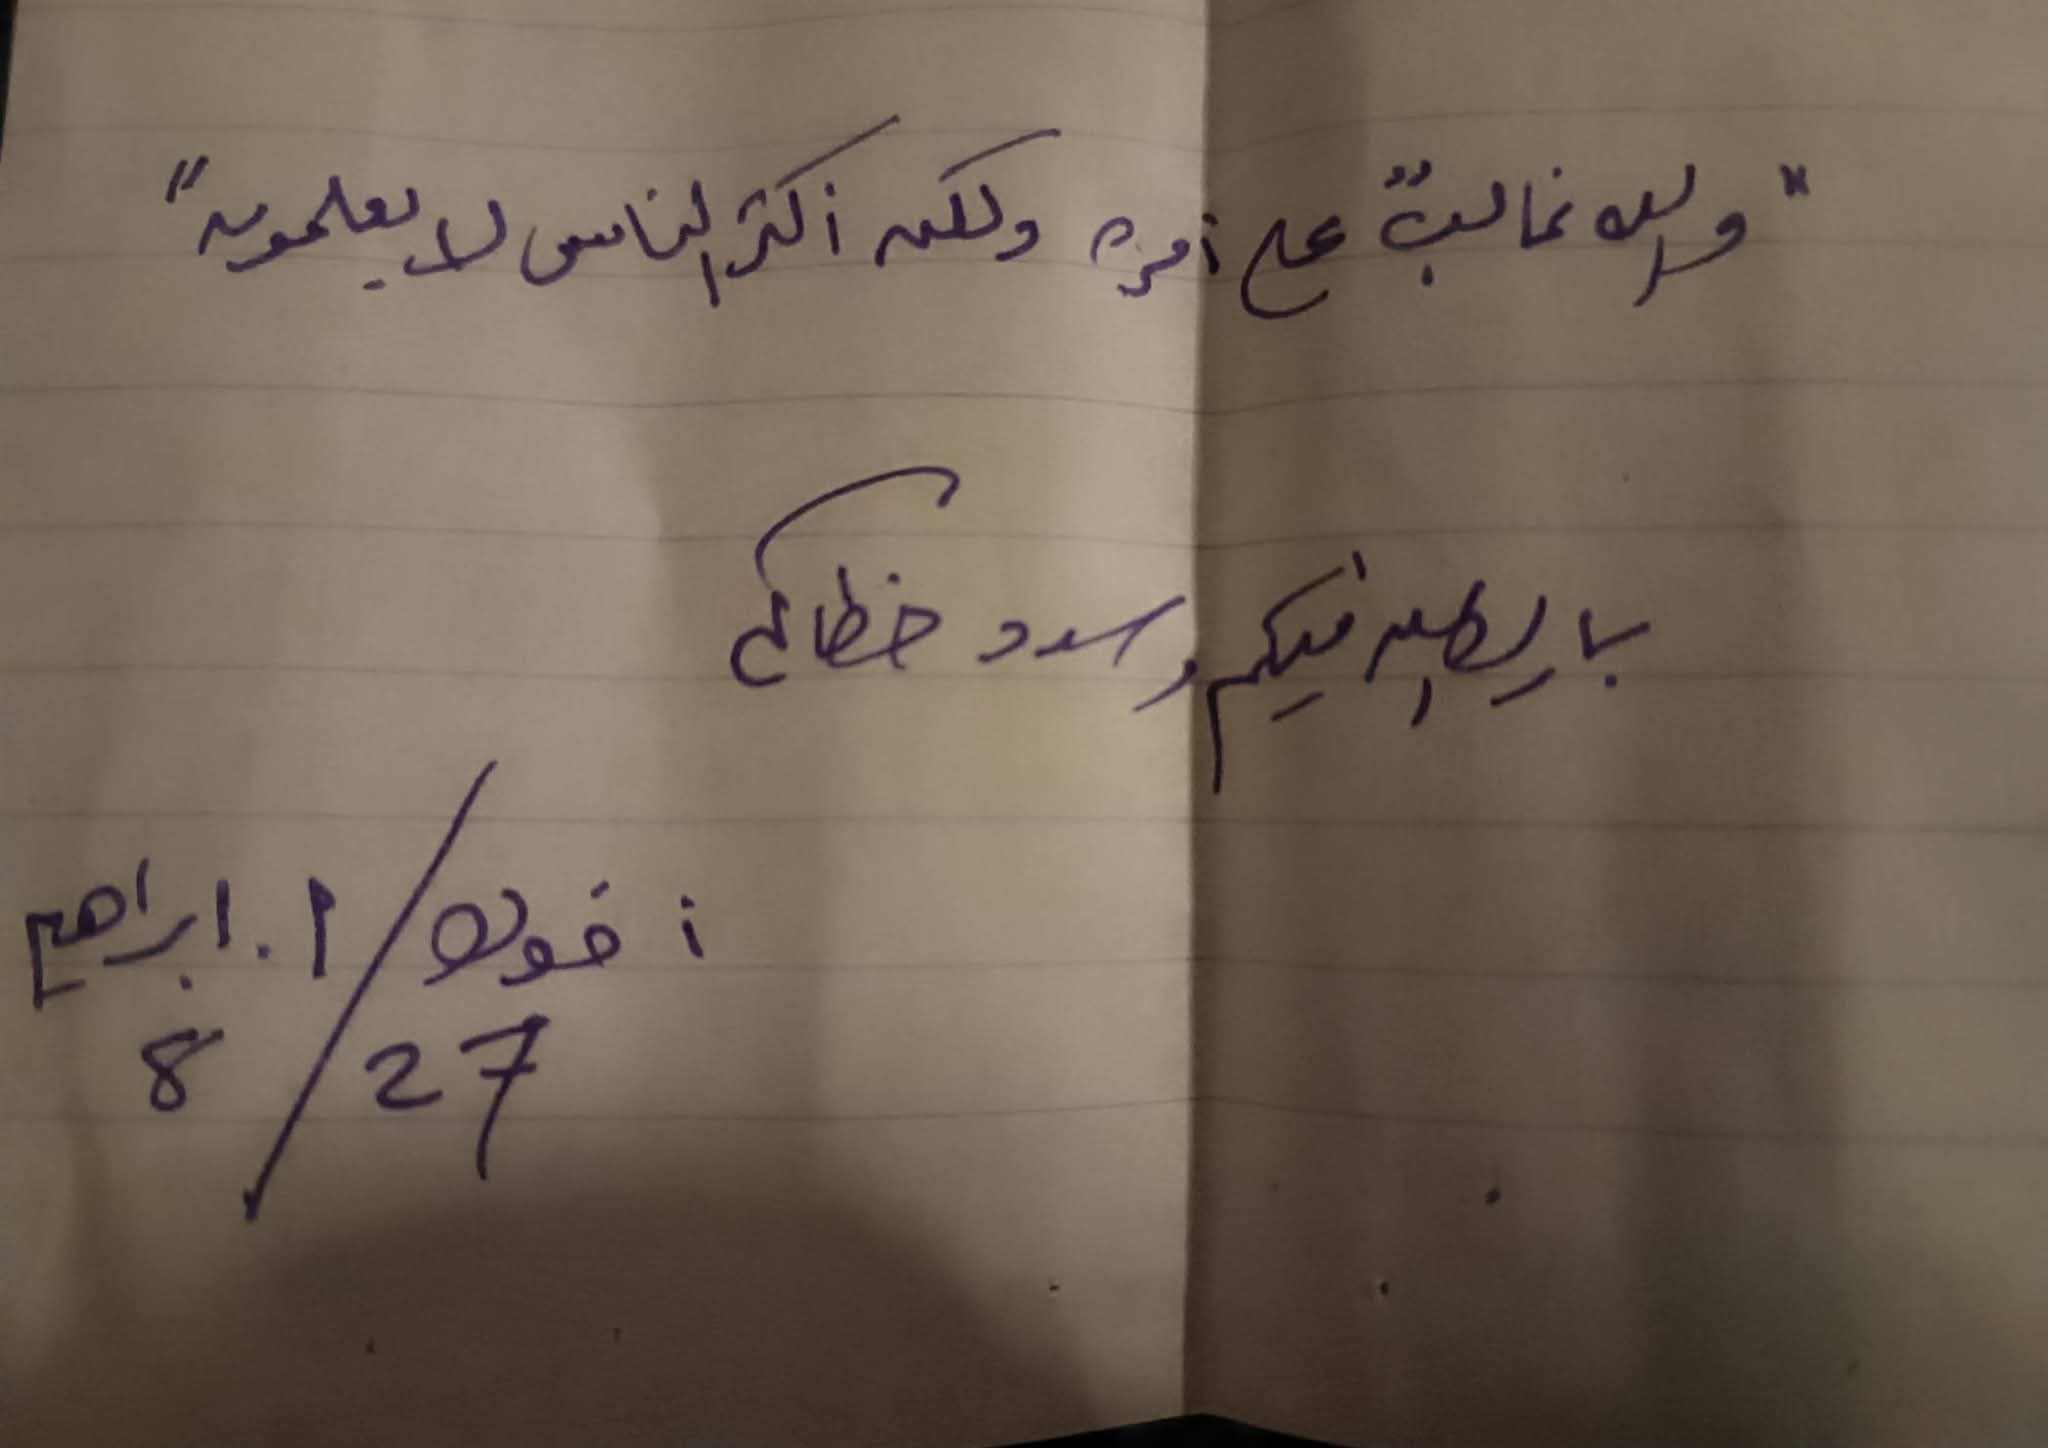 "والله غالبٌ على أمره ولكن أكثر الناس لا يعلمون"
بارك الله فيكم وسدد خطاكم
أخوك / ا. ابراهيم
27 / 8